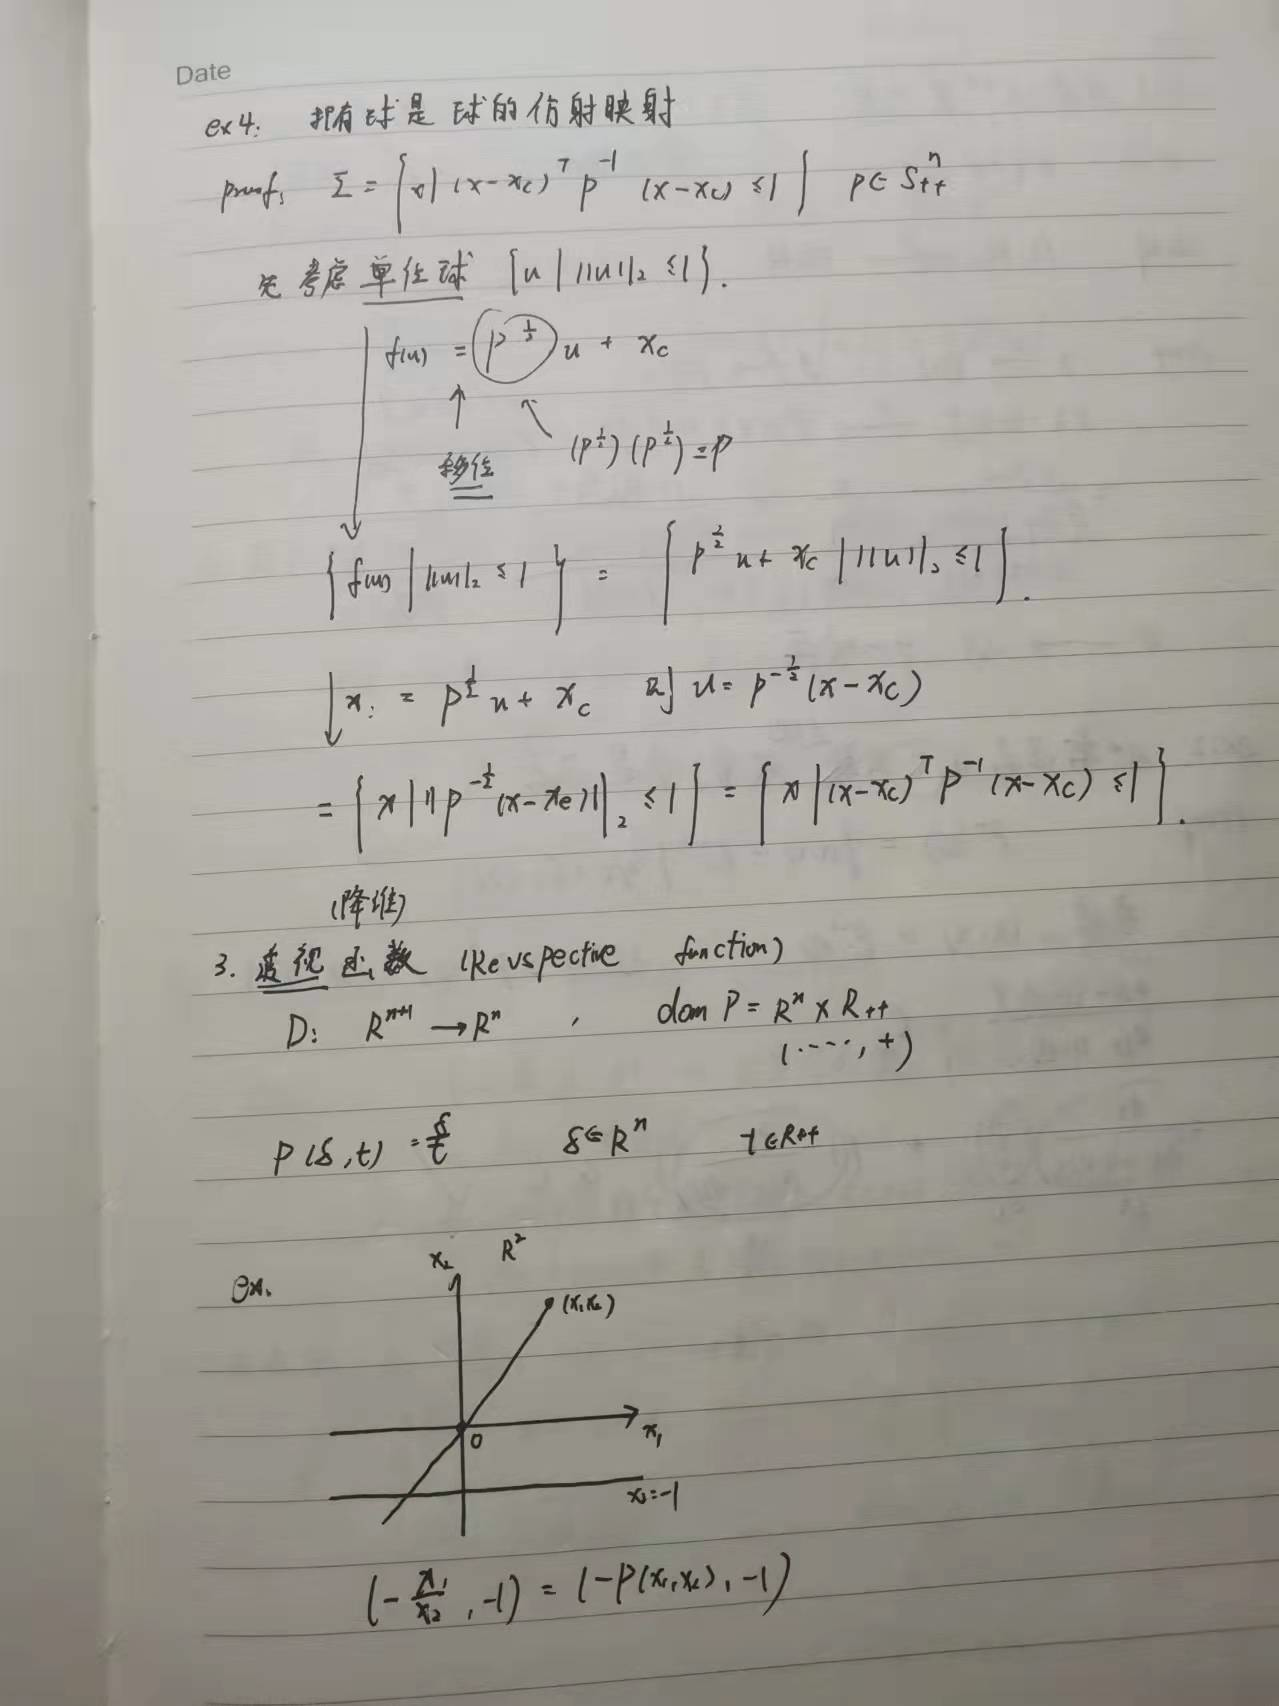 Date
ex4: 椭球是球的仿射映射
proof: Σ = {x | (x-x_c)^T P^{-1} (x-x_c) ≤ 1} P ∈ S^n_{++}
先考虑单位球 {u | ||u||_2 ≤ 1}.
f(u) = P^{1/2} u + x_c
移位 (P^{1/2})(P^{1/2}) = P
{f(u) | ||u||_2 ≤ 1} = {P^{1/2} u + x_c | ||u||_2 ≤ 1}.
x: = P^{1/2} u + x_c 则 u = P^{-1/2} (x-x_c)
= {x | ||P^{-1/2} (x-x_c)||_2 ≤ 1} = {x | (x-x_c)^T P^{-1} (x-x_c) ≤ 1}.
(降维)
3. 透视函数 (Perspective function)
P: R^{n+1} → R^n , dom P = R^n × R_{++}
(····, +)
P(δ, t) = δ/t δ ∈ R^n t ∈ R_{++}
ex.
x_2 R^2
(x_1 x_2)
0 x_1
x_2=-1
(-x_1/x_2, -1) = (-P(x_1, x_2), -1)